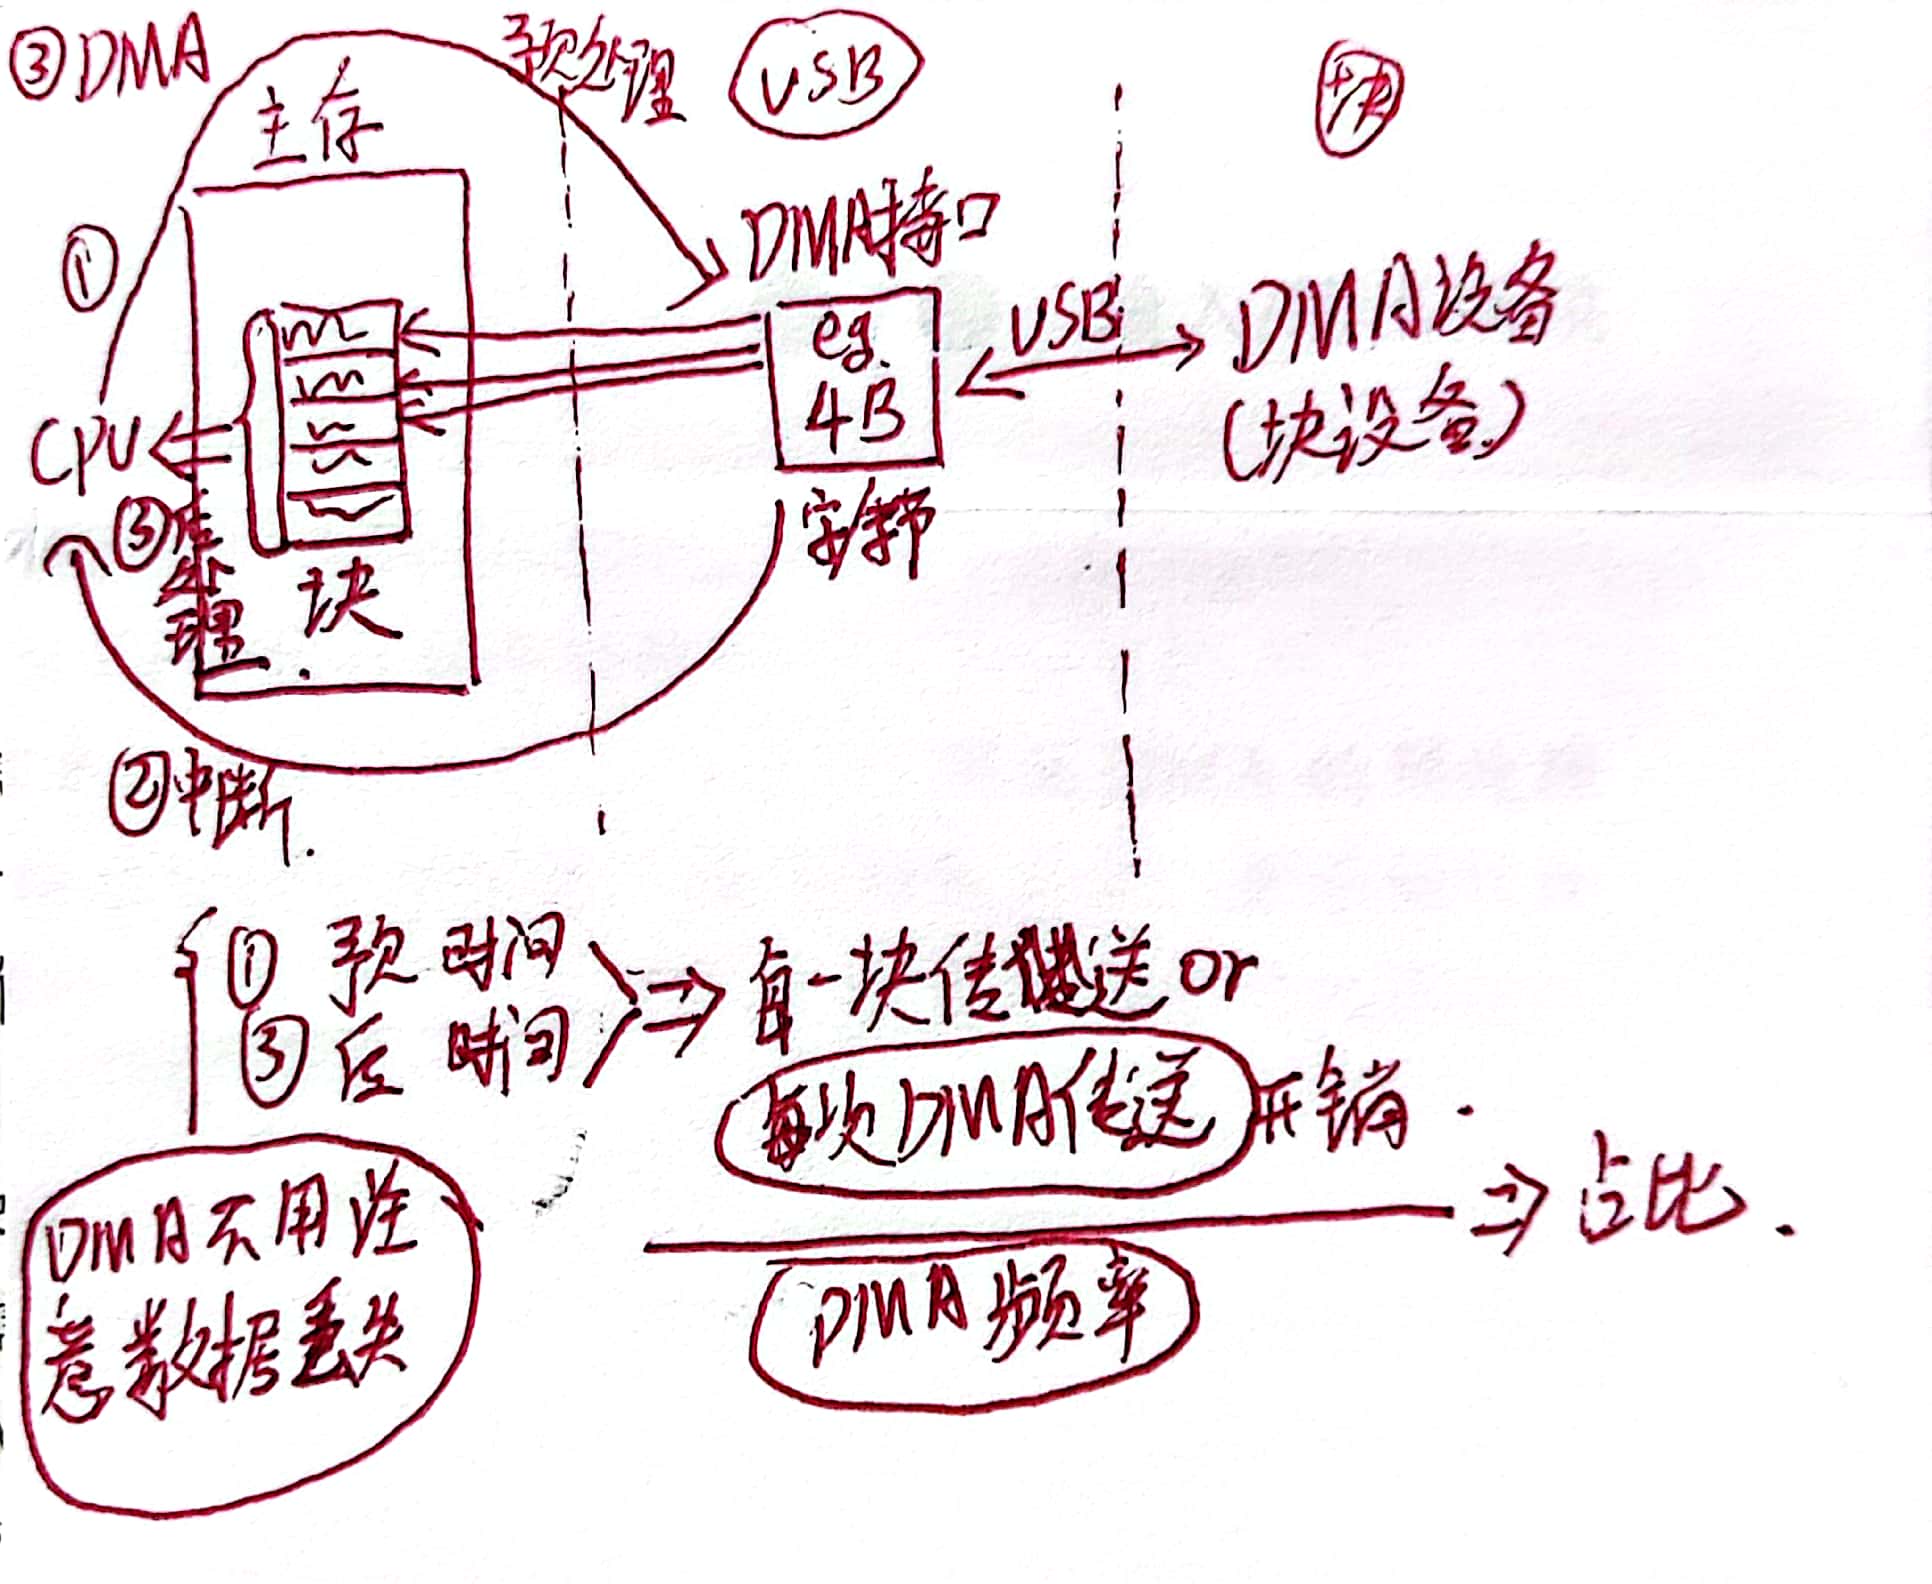 ③DMA
预处理
USB
块
主存
①
DMA接口
eg.
4B
USB
DMA设备
(块设备)
CPU
③后处理
块
②中断.
① 预 时间
③ 后 时间
每一块传送 or
每次DMA传送开销.
DMA频率
⇒占比.
DMA不用注
意数据丢失